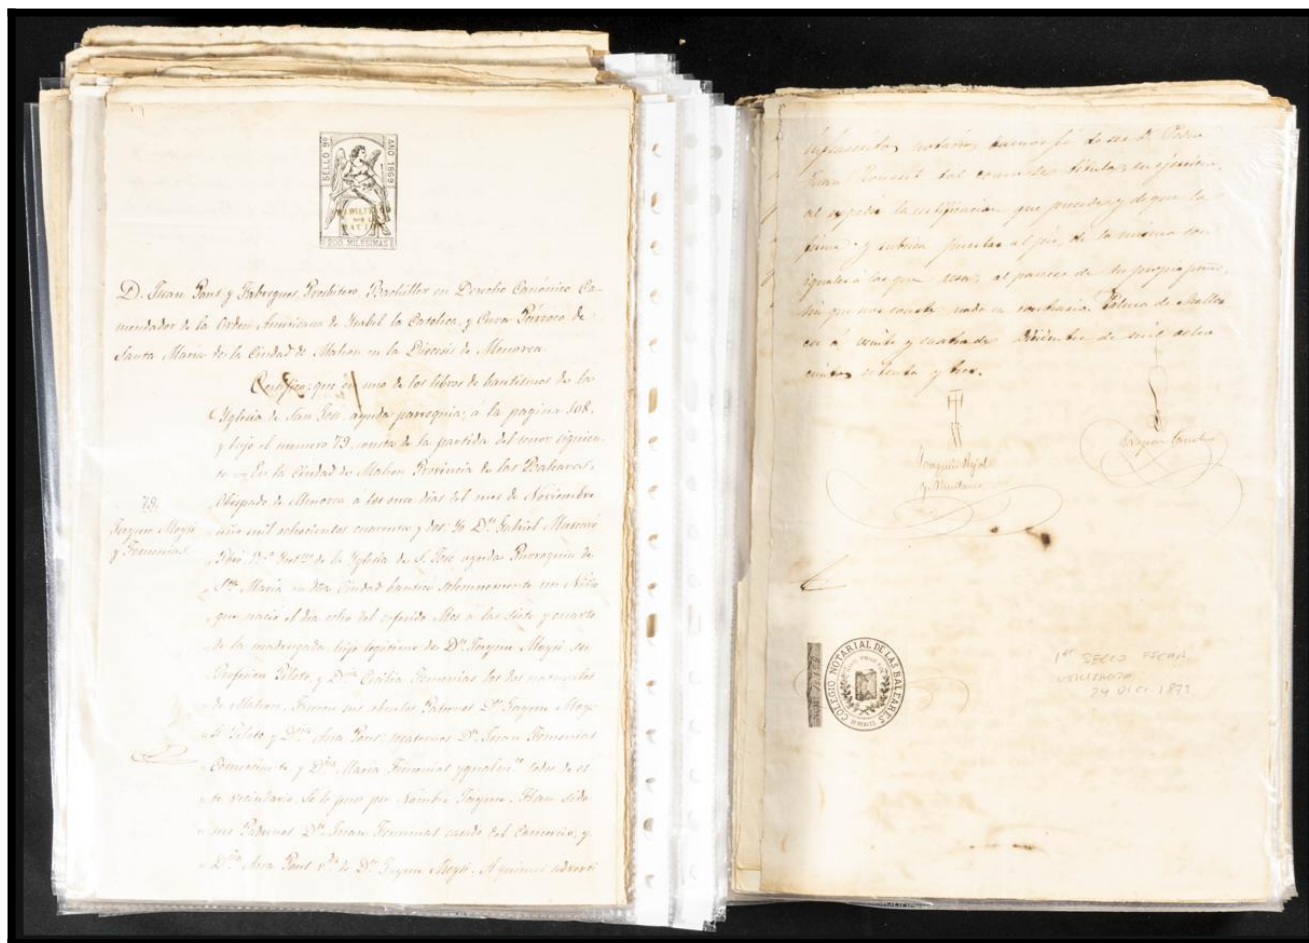 SELLO 9º
AÑO 1869
HABILITADO
POR LA
NACION
200 MILESIMAS
D. Juan Pons y Fabregues, Presbitero, Bachiller en Derecho Canónico Co-
mendador de la Orden Americana de Isabel la Catolica, y Cura Párroco de
Santa Maria de la Ciudad de Mahon en la Diócesis de Menorca
Certifico: que en uno de los libros de bautismos de la
Iglesia de San José, ayuda parroquia, á la pagina 108,
y bajo el numero 79, consta de la partida del tenor siguien-
te = En la Ciudad de Mahon Provincia de las Baleares,
Obispado de Menorca a los once dias del mes de Noviembre
año mil ochocientos cuarenta y dos: Yo Dn. Gabriel Mascaró
de la Yglesia de S. José ayuda Parroquia de
Sta. Maria en dha. Ciudad bauticé solemnemente un Niño
que nació el dia ocho del referido Mes a las siete y cuarto
de la madrugada, hijo legitimo de Dn. Jayme Moysi su
Profesion Piloto y Dña. Cecilia Femenias los dos naturales
de Mahon. Fueron sus abuelos Paternos Dn. Jayme Moy-
si Piloto y Dña. Ana Pons: maternos Dn. Juan Femenias
Comerciante, y Dña. Maria Femenias ygualmte. todos de es-
te vecindario. Se le puso por Nombre Jayme. Han sido
sus Padrinos Dn. Juan Femenias casado del Comercio, y
Dña. Ana Pons de Dn. Jayme Moysi. A quienes advertí
79.
Jayme Moysi
y Femenias
notario, damos fé de ser D. Pedro
Juan tal como se titula, en ejercicio,
al espedir la certificacion que precede, y de que la
firma y rubrica puestas al pié de la misma son
iguales á las que usa, al parecer de su propio puño,
sin que nos conste nada en contrario. Palma de Mallor-
ca á veinte y cuatro de Diciembre de mil ocho
cientos setenta y tres.
Joaquin Pujol
y Muntaner
COLEGIO NOTARIAL DE LAS BALEARES
1er SELLO FECHA
24 DIC. 1873